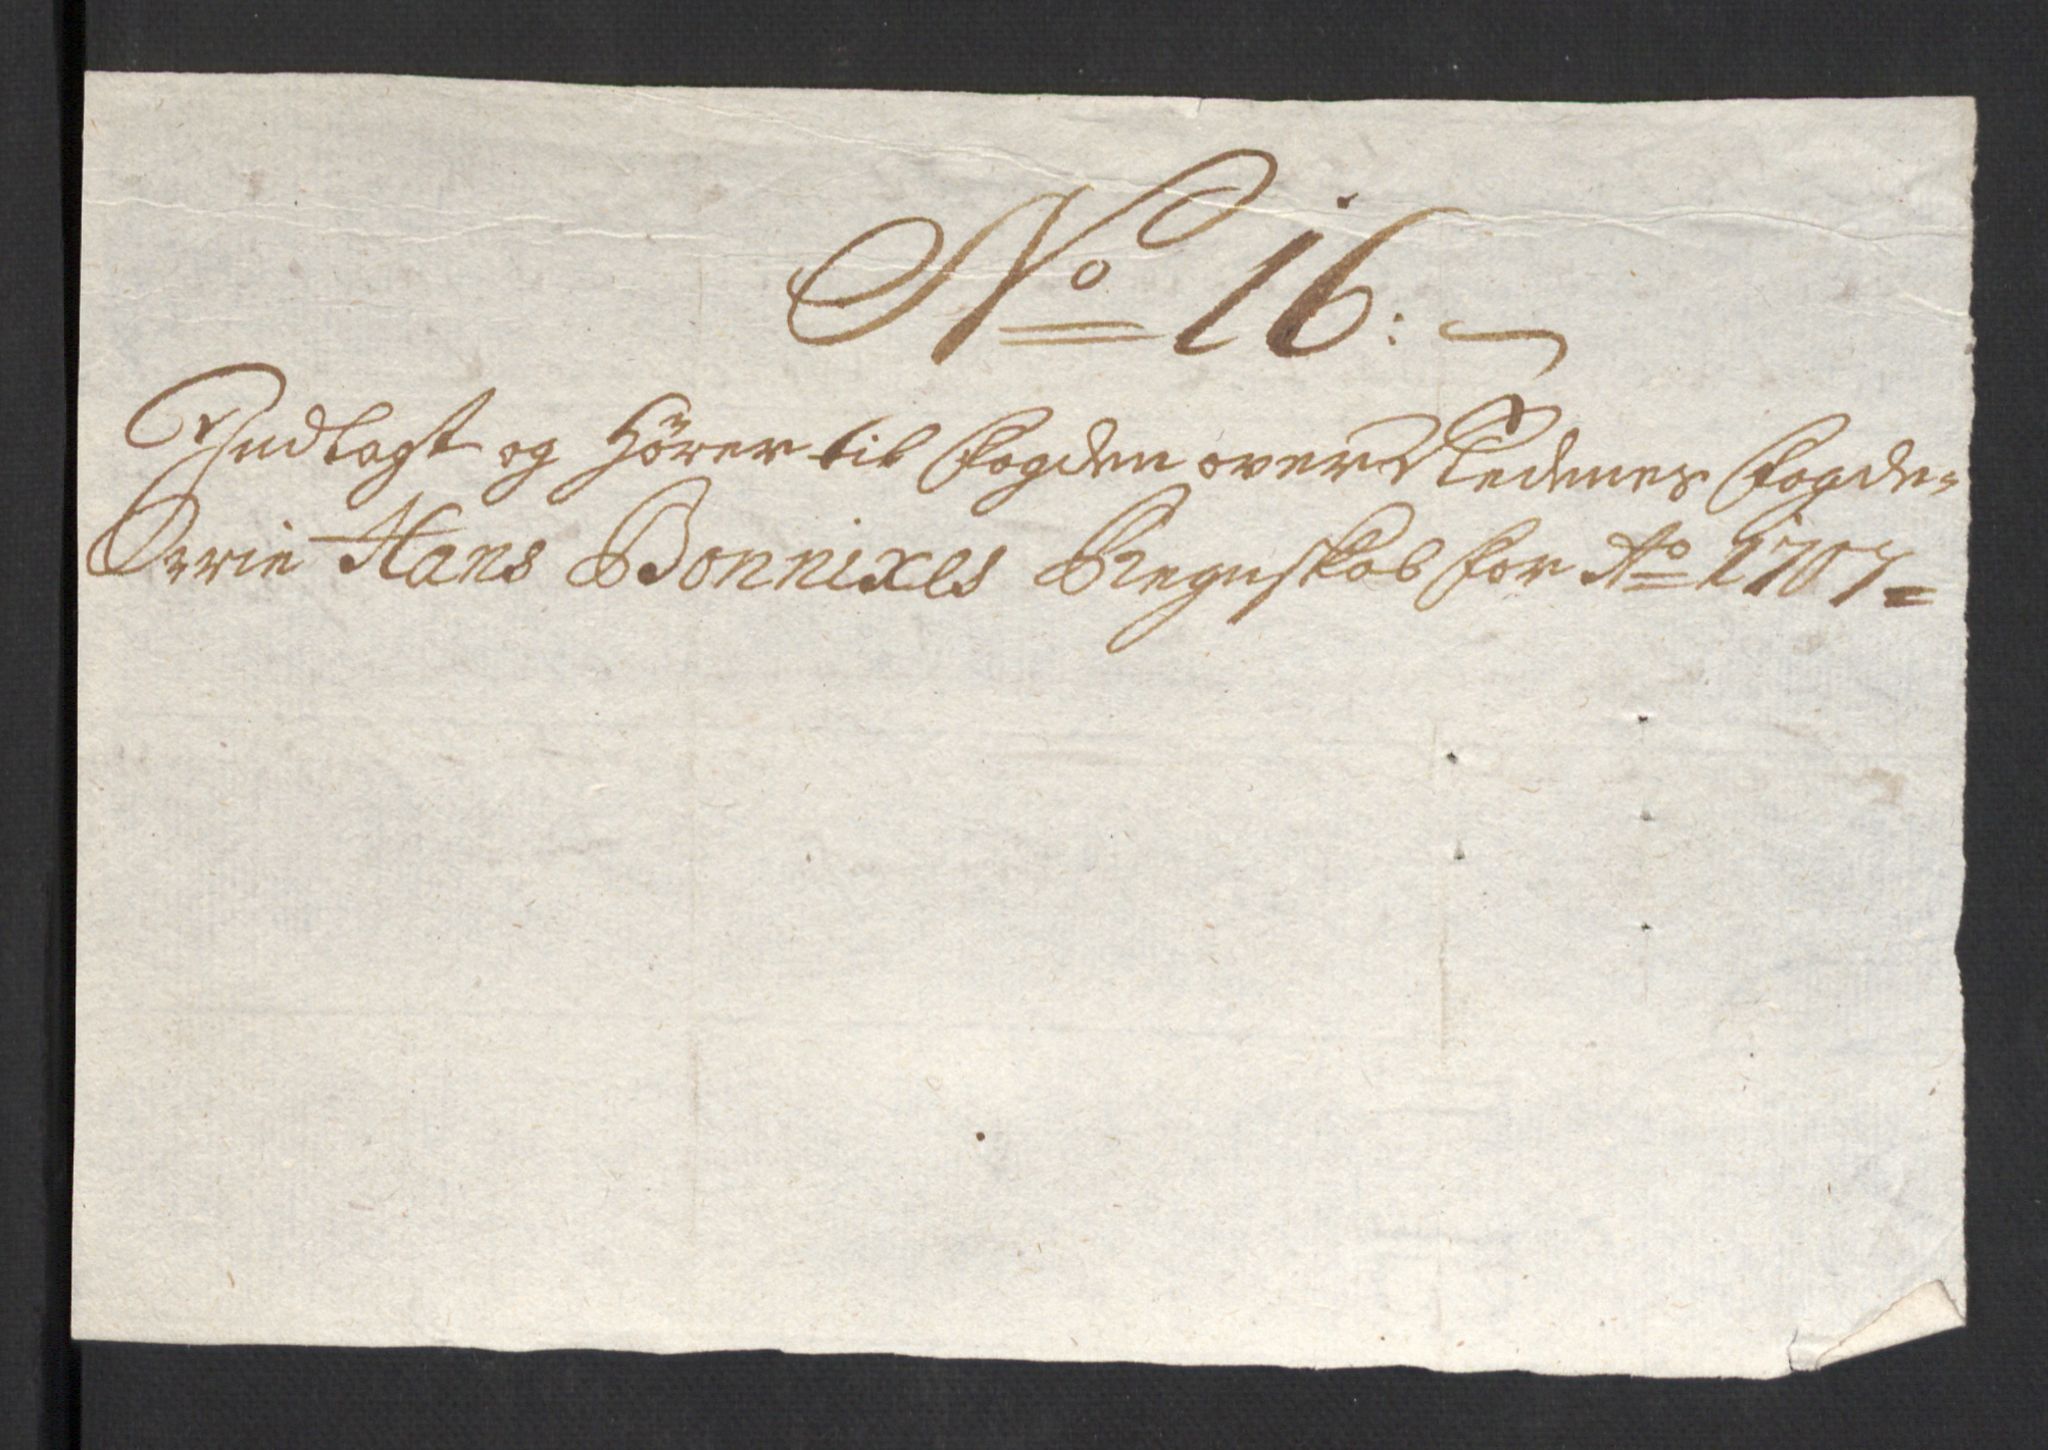 No 16:
Indlagt og hörer til fogden over Nedenes fogde=
Örrie Hans Bonnixes Regnskab for Ao 1707=